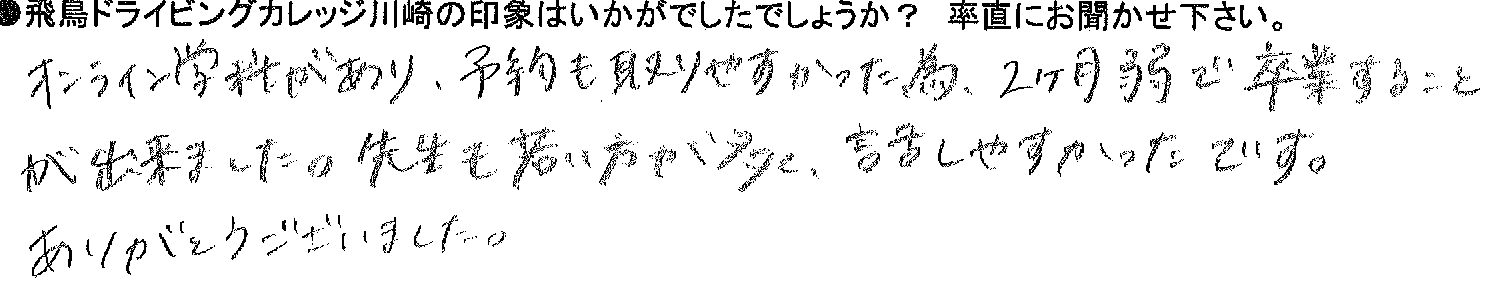 ●飛鳥ドライビングカレッジ川崎の印象はいかがでしたでしょうか？　率直にお聞かせ下さい。
オンライン学科があり、予約も取りやすかった為、2ヶ月弱で卒業すること
が出来ました。先生も若い方が多く、話しやすかったです。
ありがとうございました。